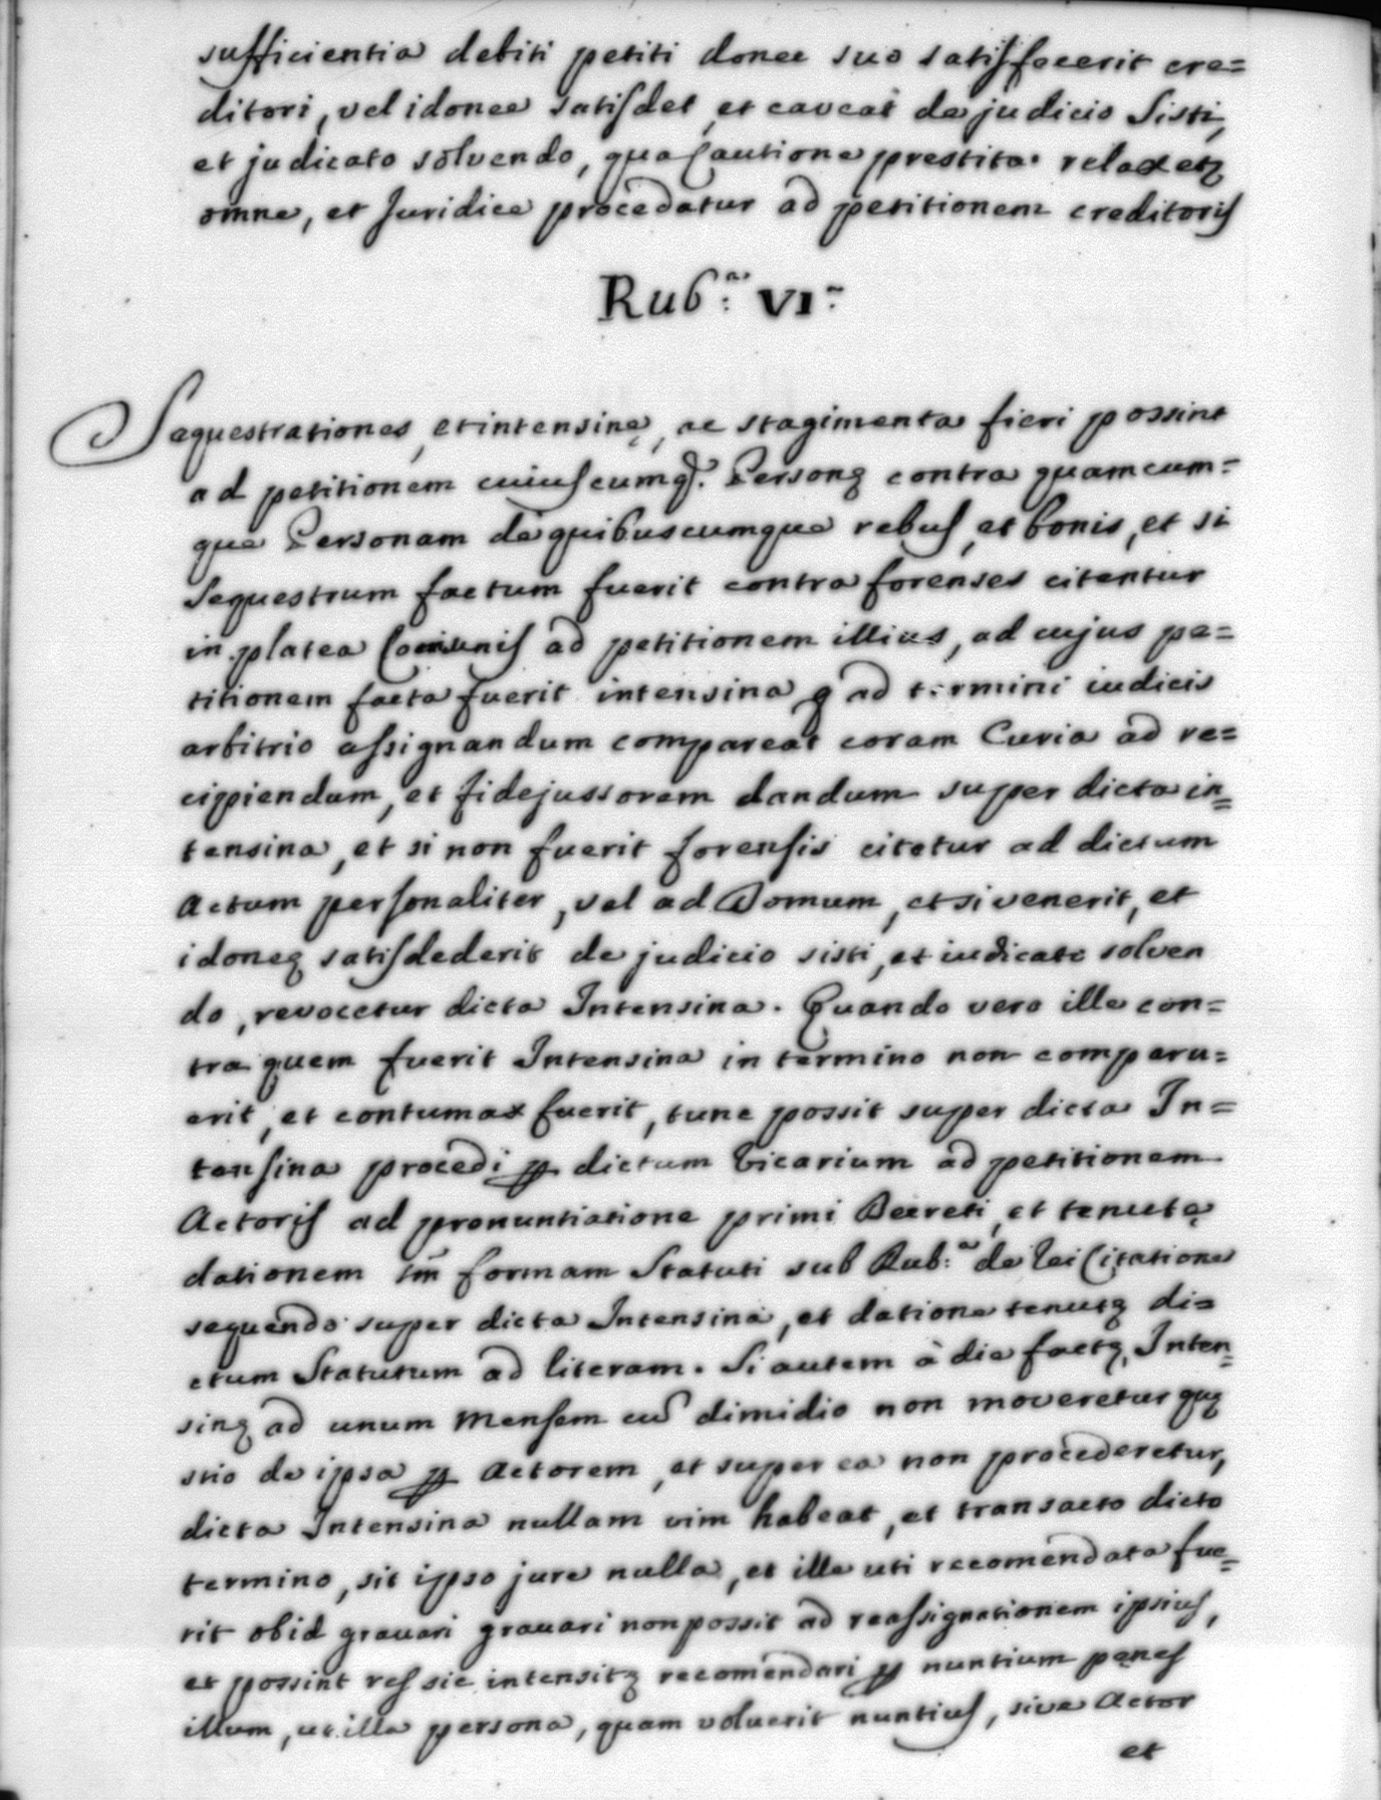 sufficientia debiti petiti donec suo satisfecerit cre=
ditori, vel idonee satisdet, et caveat de judicio sisti,
et judicato solvendo, qua Cautione prestita relaxetq
omne, et Juridice procedatur ad petitionem creditoris
Rub.ª VI.ª
Sequestrationes, et intensinę, ac stagimenta fieri possint
ad petitionem cuiuscumq. Personę contra quamcum=
que Personam de quibuscumque rebus, et bonis, et si
sequestrum factum fuerit contra forenses citentur
in platea Comunis ad petitionem illius, ad cujus pe=
titionem facta fuerit intensina q ad termini iudicis
arbitrio assignandum compareat coram Curia ad re=
cipiendum, et fidejussorem dandum super dicta in=
tensina, et si non fuerit forensis citetur ad dictum
Actum personaliter, vel ad Domum, et si venerit, et
idoneę satisdederit de judicio sisti, et iudicato solven
do, revocetur dicta Intensina. Quando vero ille con=
tra quem fuerit Intensina in termino non comparu=
erit, et contumax fuerit, tunc possit super dicta In=
tensina procedi p dictum Vicarium ad petitionem
Actoris ad pronuntiatione primi Decreti, et tenutę
dationem sm̃ formam Statuti sub Rub.ª de rei Citatione
sequendo super dicta Intensina, et datione tenutę di=
ctum Statutum ad literam. Si autem à die factę Inten=
sinę ad unum Mensem cũ dimidio non moveretur quę
stio de ipsa p Actorem, et super ea non procederetur,
dicta Intensina nullam vim habeat, et transacto dicto
termino, sit ipso jure nulla, et ille uti recomendata fue=
rit ob id gravari gravari non possit ad reassignationem ipsius,
et possint res sic intensitę recomendari p nuntium pęnes
illum, ut illa persona, quam voluerit nuntius, sive Actor
et